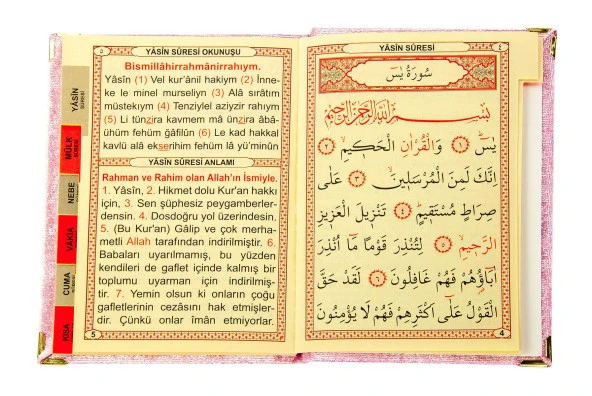 ٥
YÂSİN SÛRESİ OKUNUŞU
Bismillâhirrahmânirrahıym.
Yâsîn (1) Vel kur'ânil hakiym (2) İnne-
ke le minel murseliyn (3) Alâ sıratım
müstekıym (4) Tenziylel aziyzir rahıym
(5) Li tünzira kavmem mâ ünzira âbâ-
ühüm fehüm ğâfilûn (6) Le kad hakkal
kavlü alâ ekserihim fehüm lâ yü'minûn
YÂSİN SÛRESİ ANLAMI
Rahman ve Rahim olan Allah'ın İsmiyle.
1. Yâsîn, 2. Hikmet dolu Kur'an hakkı
için, 3. Sen şüphesiz peygamberler-
densin. 4. Dosdoğru yol üzerindesin.
5. (Bu Kur'an) Gâlip ve çok merha-
metli Allah tarafından indirilmiştir. 6.
Babaları uyarılmamış, bu yüzden
kendileri de gaflet içinde kalmış bir
toplumu uyarman için indirilmiş-
tir. 7. Yemin olsun ki onların çoğu
gafletlerinin cezasını hak etmişler-
dir. Çünkü onlar îmân etmiyorlar.
5
YÂSİN
SÛRESİ
MÜLK
SÛRESİ
NEBE
VÂKIA
CUMA
KISA
YÂSİN SÛRESİ
٤
سُورَةُ يٰسٓ
بِسْمِ اللّٰهِ الرَّحْمٰنِ الرَّحِيمِ
يٰسٓ ﴿١﴾ وَالْقُرْاٰنِ الْحَكٖيمِ ﴿٢﴾
اِنَّكَ لَمِنَ الْمُرْسَلٖينَ ﴿٣﴾ عَلٰى
صِرَاطٍ مُسْتَقٖيمٍ ﴿٤﴾ تَنْزٖيلَ الْعَزٖيزِ
الرَّحٖيمِ ﴿٥﴾ لِتُنْذِرَ قَوْمًا مَٓا اُنْذِرَ
اٰبَٓاؤُهُمْ فَهُمْ غَافِلُونَ ﴿٦﴾ لَقَدْ حَقَّ
الْقَوْلُ عَلٰٓى اَكْثَرِهِمْ فَهُمْ لَا يُؤْمِنُونَ
4